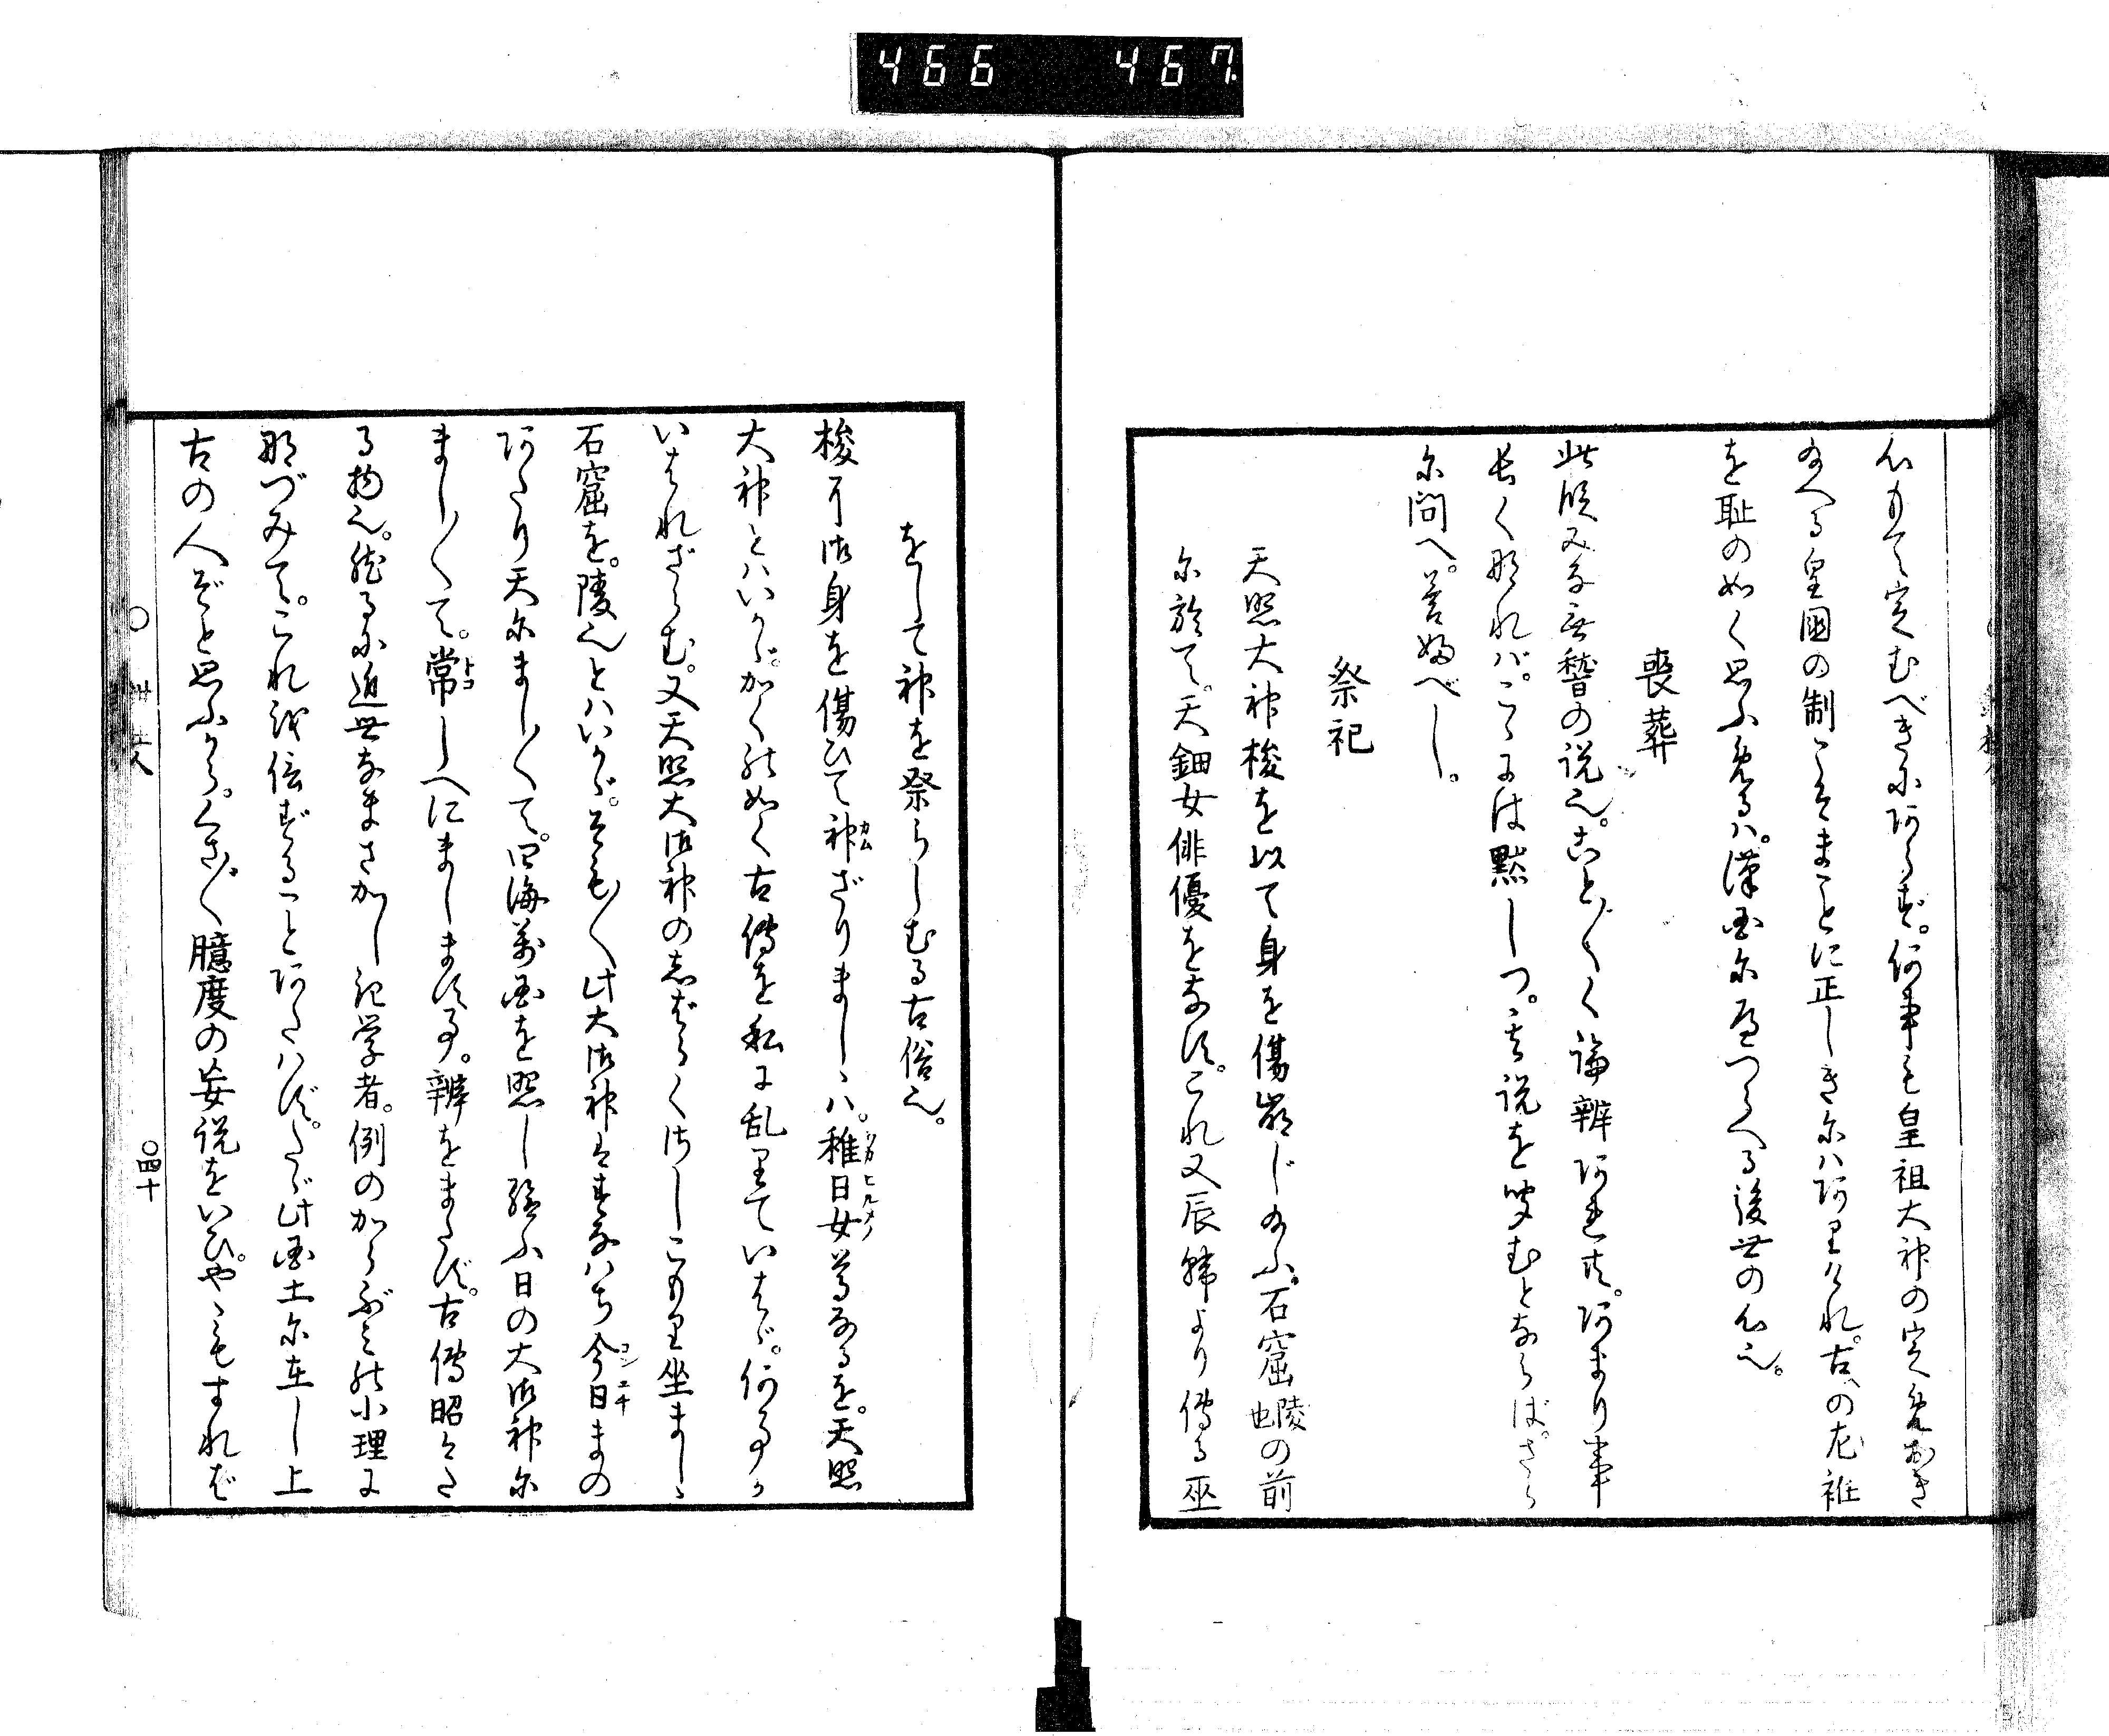 466 467
心もて定むべきにあらず。何事も皇祖大神の定めおき
給へる皇國の制こそまことに正しきにハありけれ。古の尨雜
を恥の如く思ふめるハ。漢国にへつらへる後世の心也。
喪葬
此段又みな無稽の説也。ことごとく論辨あれ共。あまり事
長く那れバ。こゝには黙しつ。其説を聞むとならば。さら
に問へ。答ふべし。
祭祀
天照大神梭を以て身を傷崩じ給ふ。石窟陵也の前
に於て。天鈿女俳優をなす。これ又辰韓より傳る巫
をして神を祭らしむる古俗也。
梭に御身を傷ひて神ざりましゝハ。稚日女尊なるを。天照
大神とハいかゞ。かくの如く古傳を私に乱りていはゞ。何事か
いはれざらむ。又天照大御神のしばらくさしこもり坐ましゝ
石窟を。陵也とハいかゞ。そもそも此大御神はすなハち今日まの
あたり天にましまして。四海萬国を照し給ふ日の大御神に
ましまして。常しへにまします事。辨をまたず。古傳昭々た
る物也。然るに近世なまさかしき学者。例のからぶみの小理に
那づみて。これを信ずることあたハず。たゞ此国土に在し上
古の人ぞと思ふから。くさぐさ臆度の妄説をいひ。やゝもすれば
卌五
〇四十